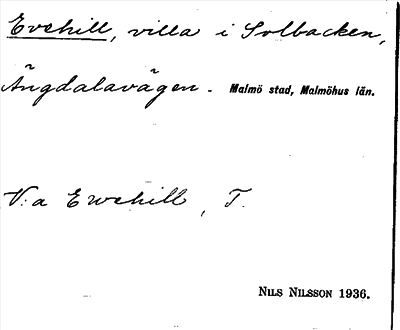 Evehill, villa i Solbacken,
Ängdalavägen. Malmö stad, Malmöhus län.
V:a Ewehill, T.
NILS NILSSON 1936.